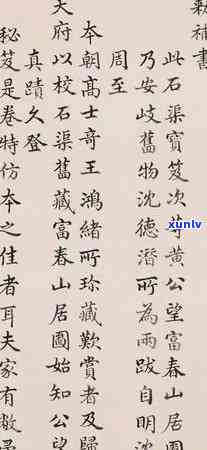 敕補書
此石渠寶笈次等黃公望富春山居圖
乃安岐舊物沈德潛所為兩跋自明沈
周至
本朝高士奇王鴻緒所珍藏歎賞者及歸
天府以校石渠舊藏富春山居圖始知公望
真蹟久登
秘笈是卷特仿本之佳者耳夫家有敝
xunlv